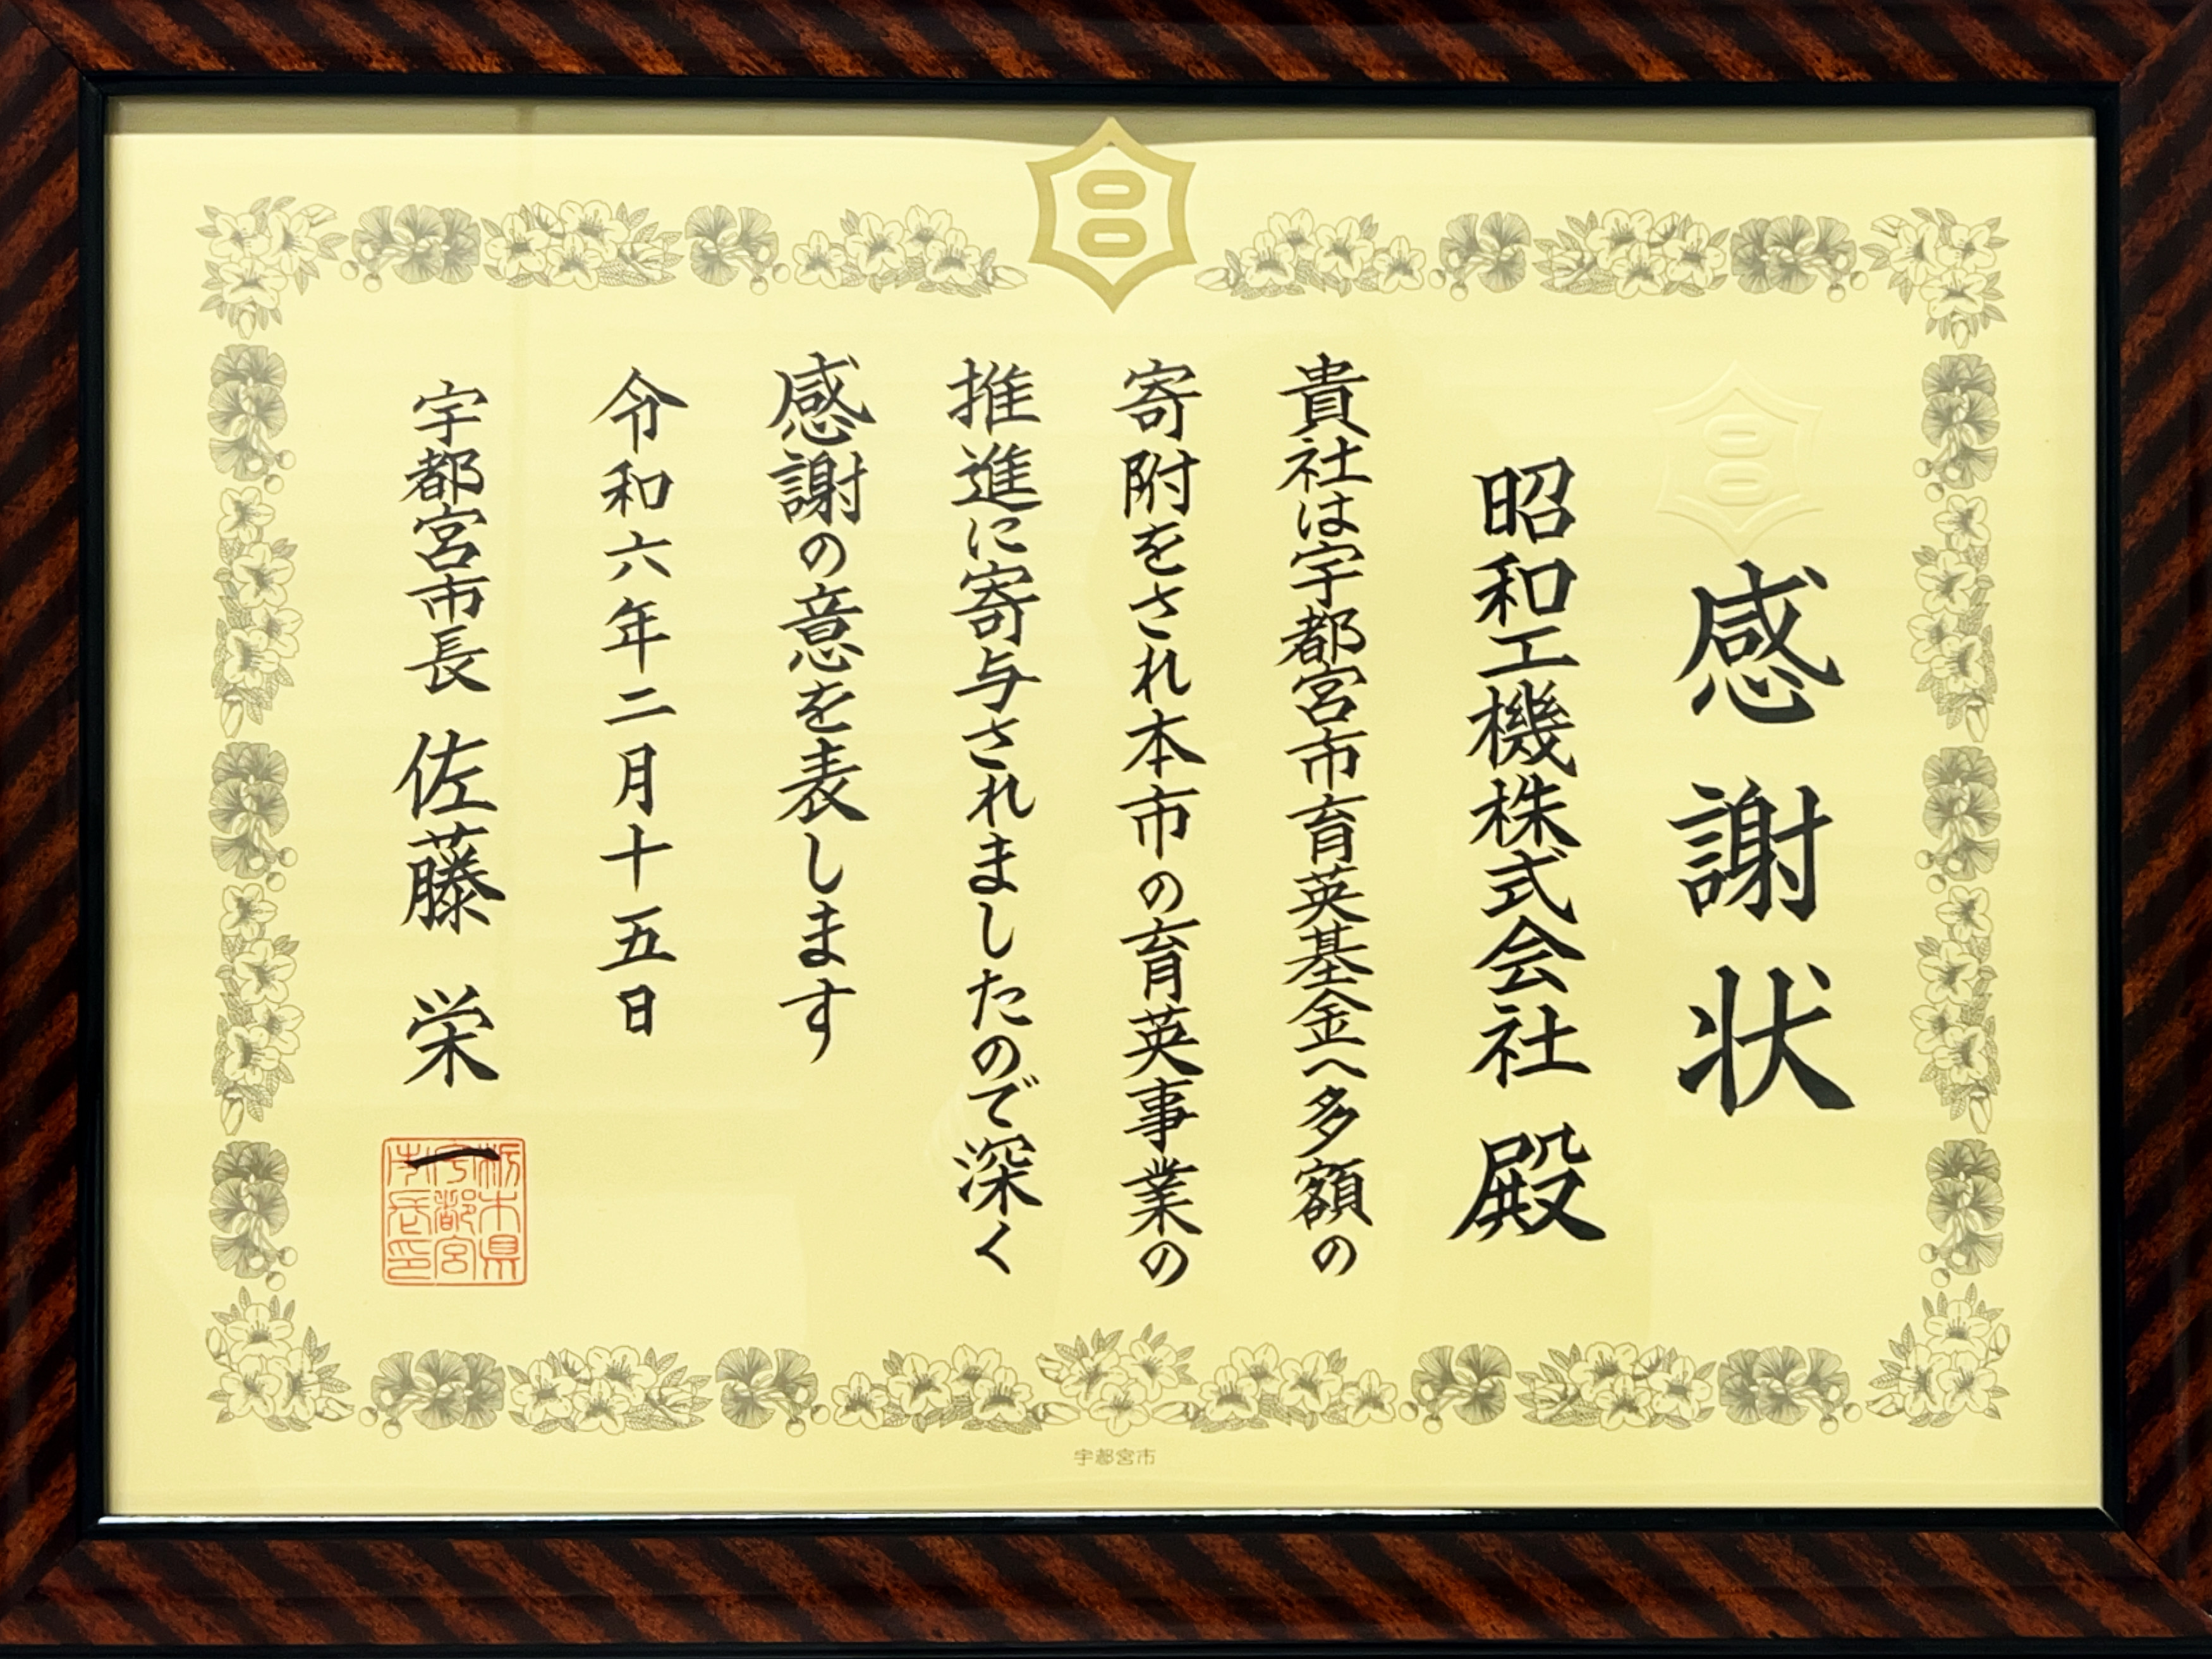 感謝状
昭和工機株式会社 殿
貴社は宇都宮市育英基金へ多額の
寄附をされ本市の育英事業の
推進に寄与されましたので深く
感謝の意を表します
令和六年二月十五日
宇都宮市長 佐藤 栄一
栃木県
宇都宮
市長印
宇都宮市